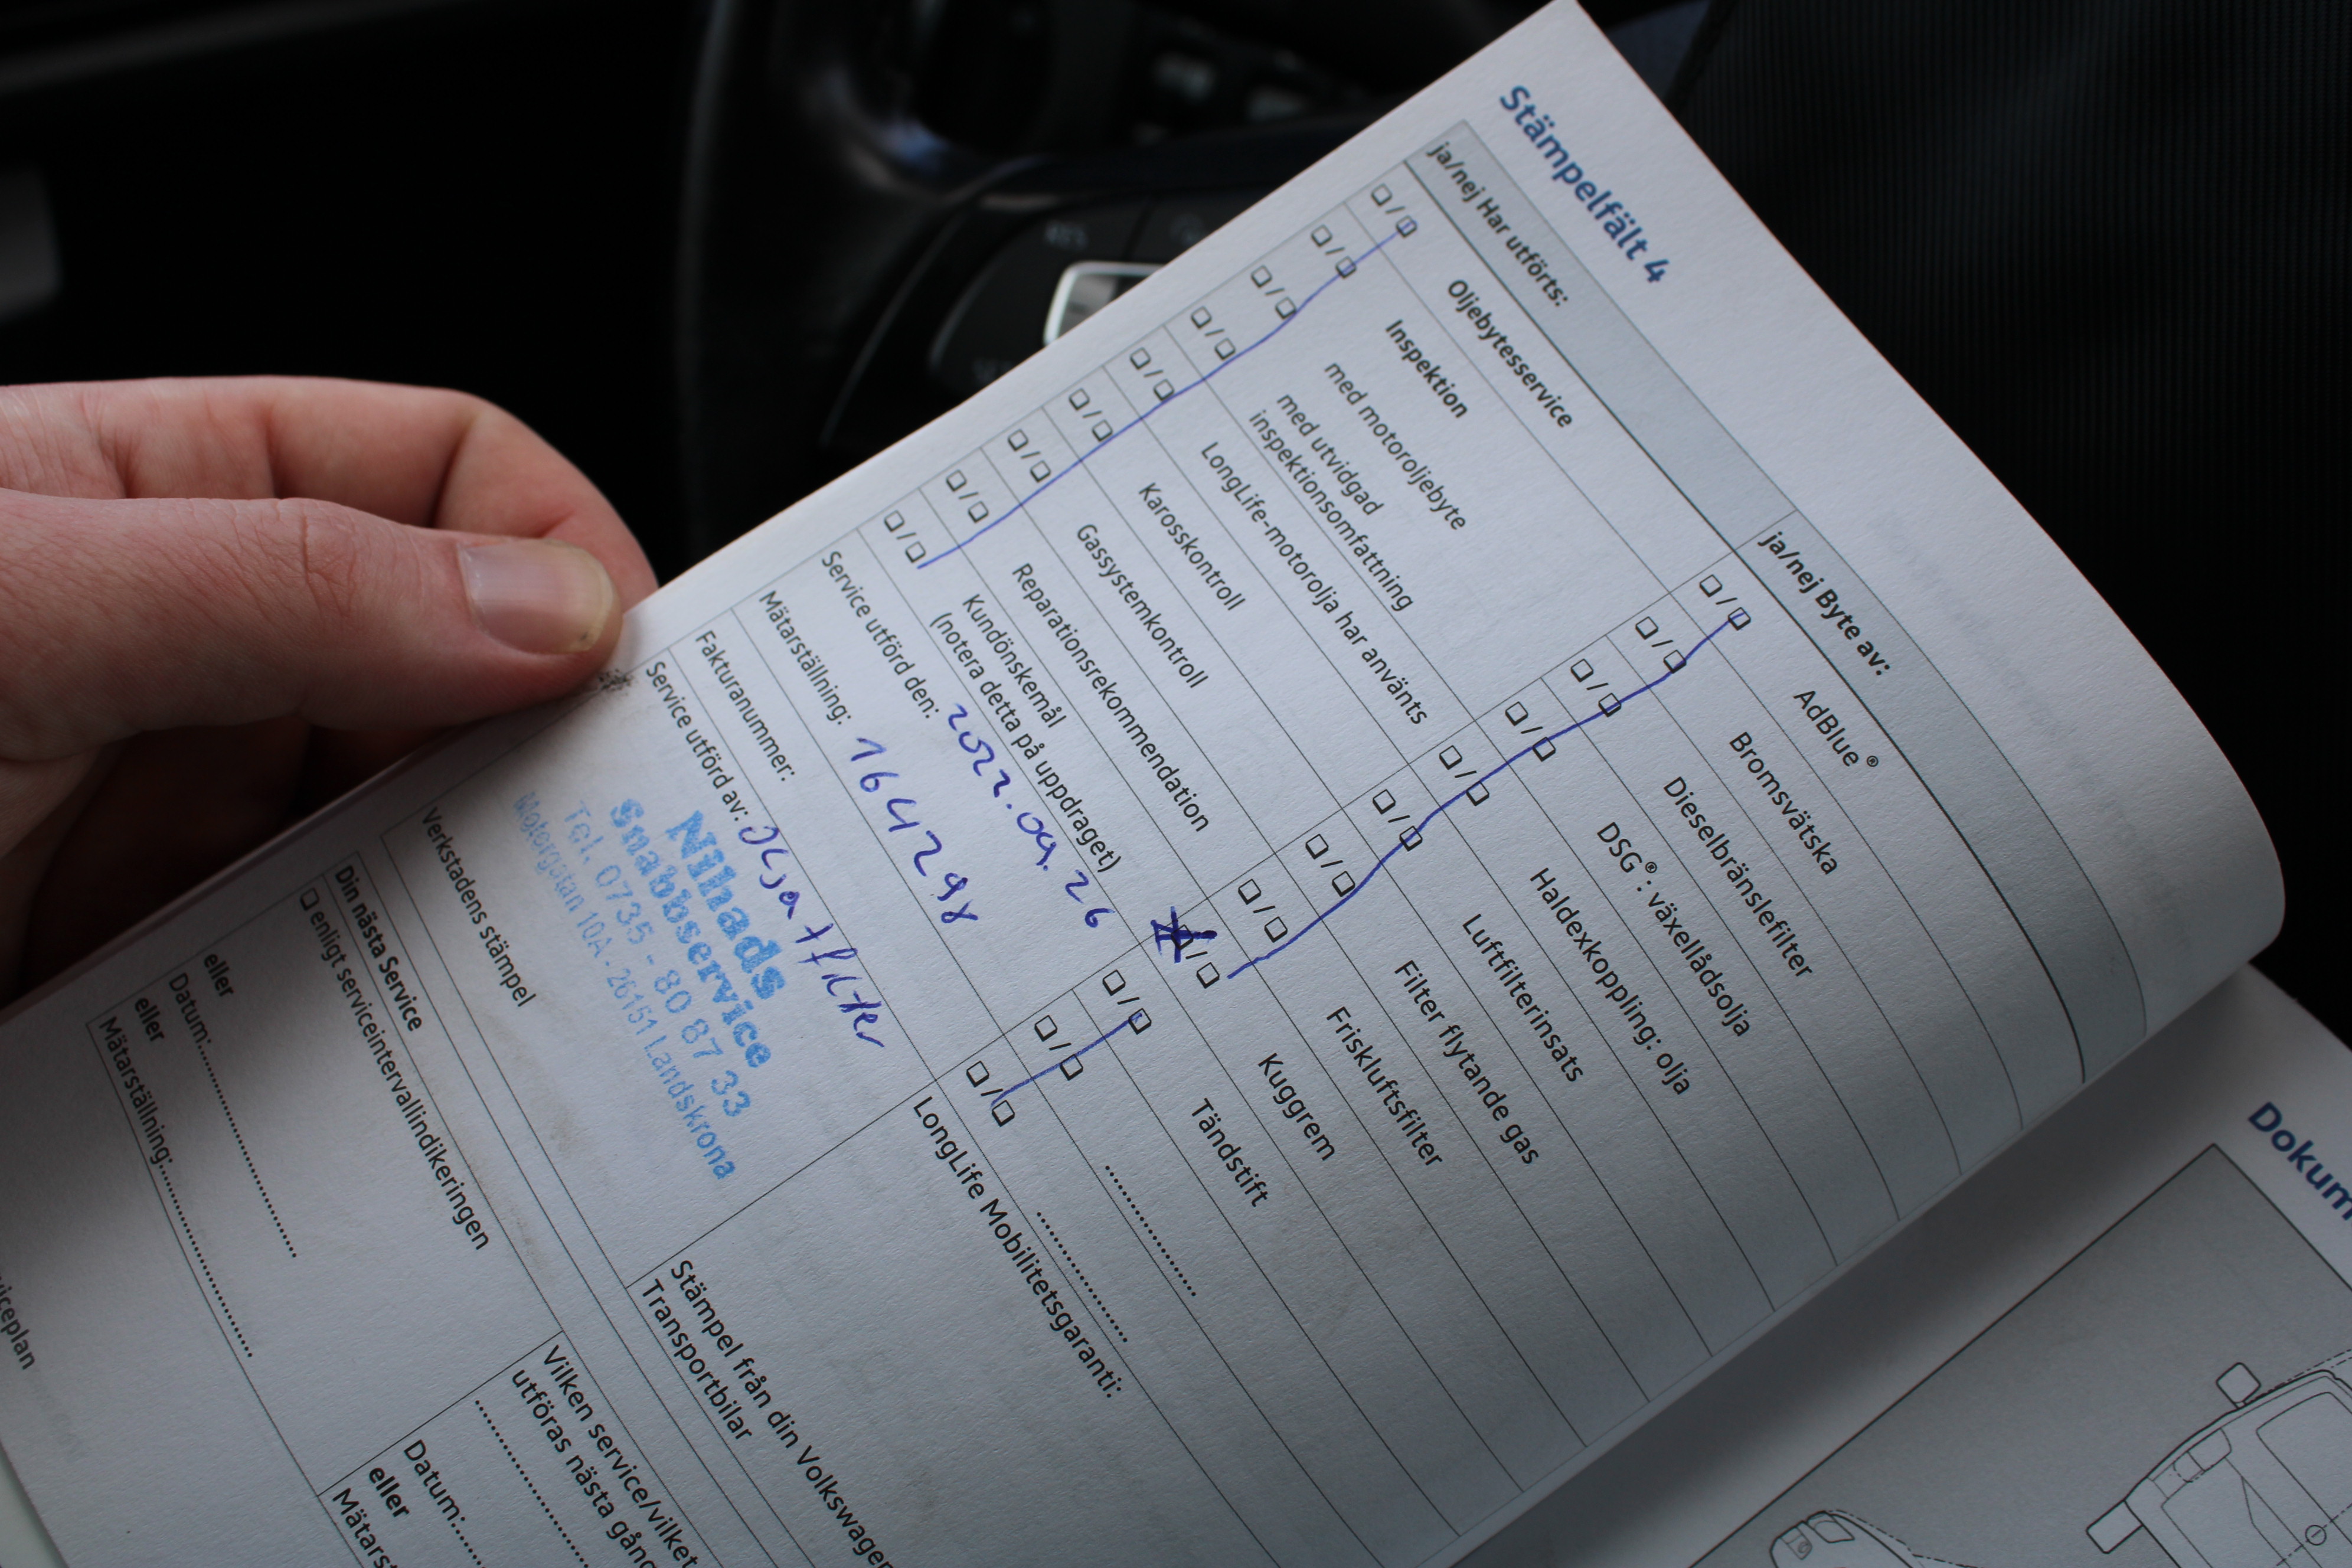 Stämpelfält 4
ja/nej Har utförts:
Oljebytesservice
Inspektion
med motoroljebyte
med utvidgad
inspektionsomfattning
LongLife-motorolja har använts
Karosskontroll
Gassystemkontroll
Reparationsrekommendation
Kundönskemål
(notera detta på uppdraget)
Service utförd den: 2022.09.26
Mätarställning: 164298
Fakturanummer:
Service utförd av:
filter
Nihads
Snabbservice
Tel. 0735 - 80 87 33
Motorgatan 10A - 26151 Landskrona
Verkstadens stämpel
Din nästa Service
enligt serviceintervallindikeringen
eller
Datum:
eller
Mätarställning:
ja/nej Byte av:
AdBlue®
Bromsvätska
Dieselbränslefilter
DSG®: växellådsolja
Haldexkoppling: olja
Luftfilterinsats
Filter flytande gas
Friskluftsfilter
Kuggrem
Tändstift
LongLife Mobilitetsgaranti:
Stämpel från din Volkswagen
Transportbilar
Vilken service/vilket
utföras nästa gång
Datum:
eller
Mätarst
viceplan
Dokum